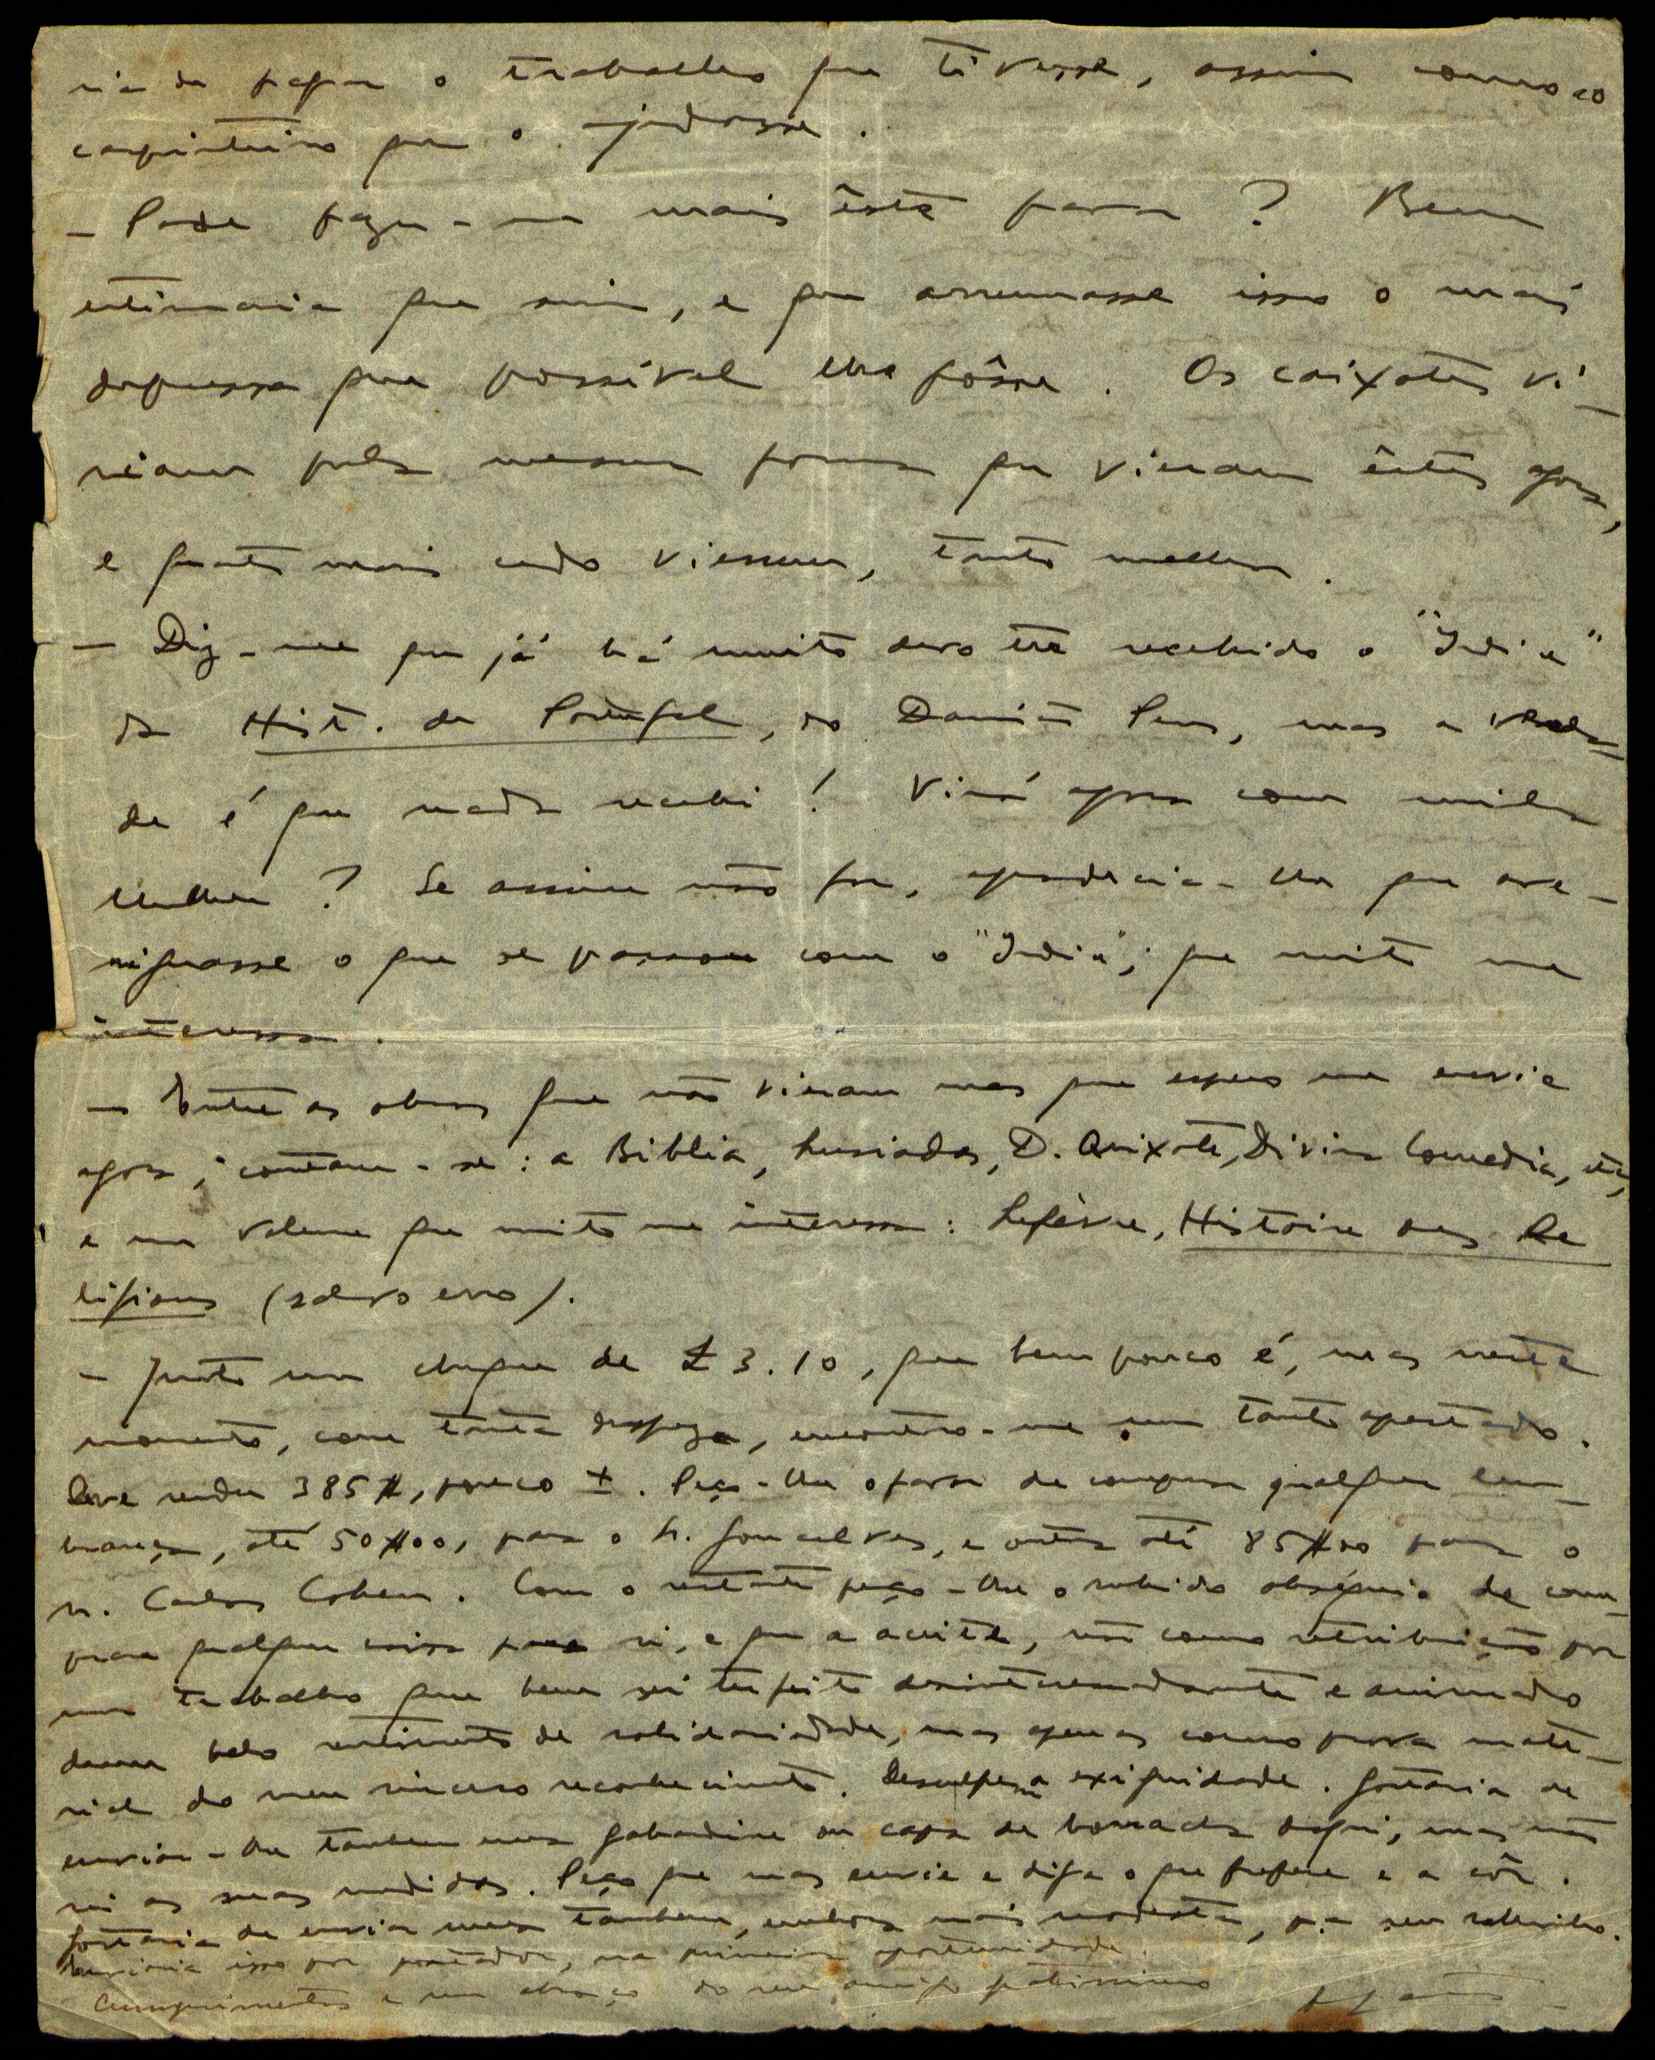 ria de pagar o trabalho que tivesse, assim como ao
carpinteiro que o ajudasse.
— Pode fazer-me mais êste favor? Bem
estimaria que sim, e que arrumasse isso o mais
depressa que possível lhe fôsse. Os caixotes vi-
riam pela mesma forma que vieram êstes agora,
e quanto mais cedo viessem, tanto melhor.
— Diz-me que já há muito devo ter recebido o "Índice"
da Hist. de Portugal, do Damião Peres, mas a verda-
de é que nada recebi! Virá agora com minha
mulher? Se assim não fôr, agradecia-lhe que ave-
riguasse o que se passou com o "Índice", que muito me
interessa.
— Entre as obras que não vieram mas que espero me envie
agora, contam-se: a Biblia, Lusiadas, D. Quixote, Divina Comedia, etc,
e um volume que muito me interessa: Lefèvre, Histoire des Re
ligions (salvo erro).
— Junto um cheque de £ 3.10, que bem pouco é, mas neste
momento, com tanta despeza, encontro-me um tanto apertado.
Deve render 385$, pouco ±. Peço-lhe o favor de comprar qualquer lem-
brança, até 50$00, para o Sr. Gonçalves, e outra até 85$00 para o
Sr. Carlos Cohen. Com o restante peço-lhe o subido obséquio de com-
prar qualquer coisa para si, e que a aceite, não como retribuição por
um trabalho que bem sei ter feito desinteressadamente e animado
dum belo sentimento de solidariedade, mas apenas como prova mate-
rial do meu sincero reconhecimento. Desculpe a exiguidade. Gostaria de
enviar-lhe tambem uma gabardine ou capa de borracha daqui, mas não
sei as suas medidas. Peço que mas envie e diga o que prefere e a côr.
Gostaria de enviar uma tambem, embora mais modesta, p.a seu sobrinho.
Enviaria isso por portador, na primeira oportunidade.
Cumprimentos e um abraço do seu amigo gratissimo